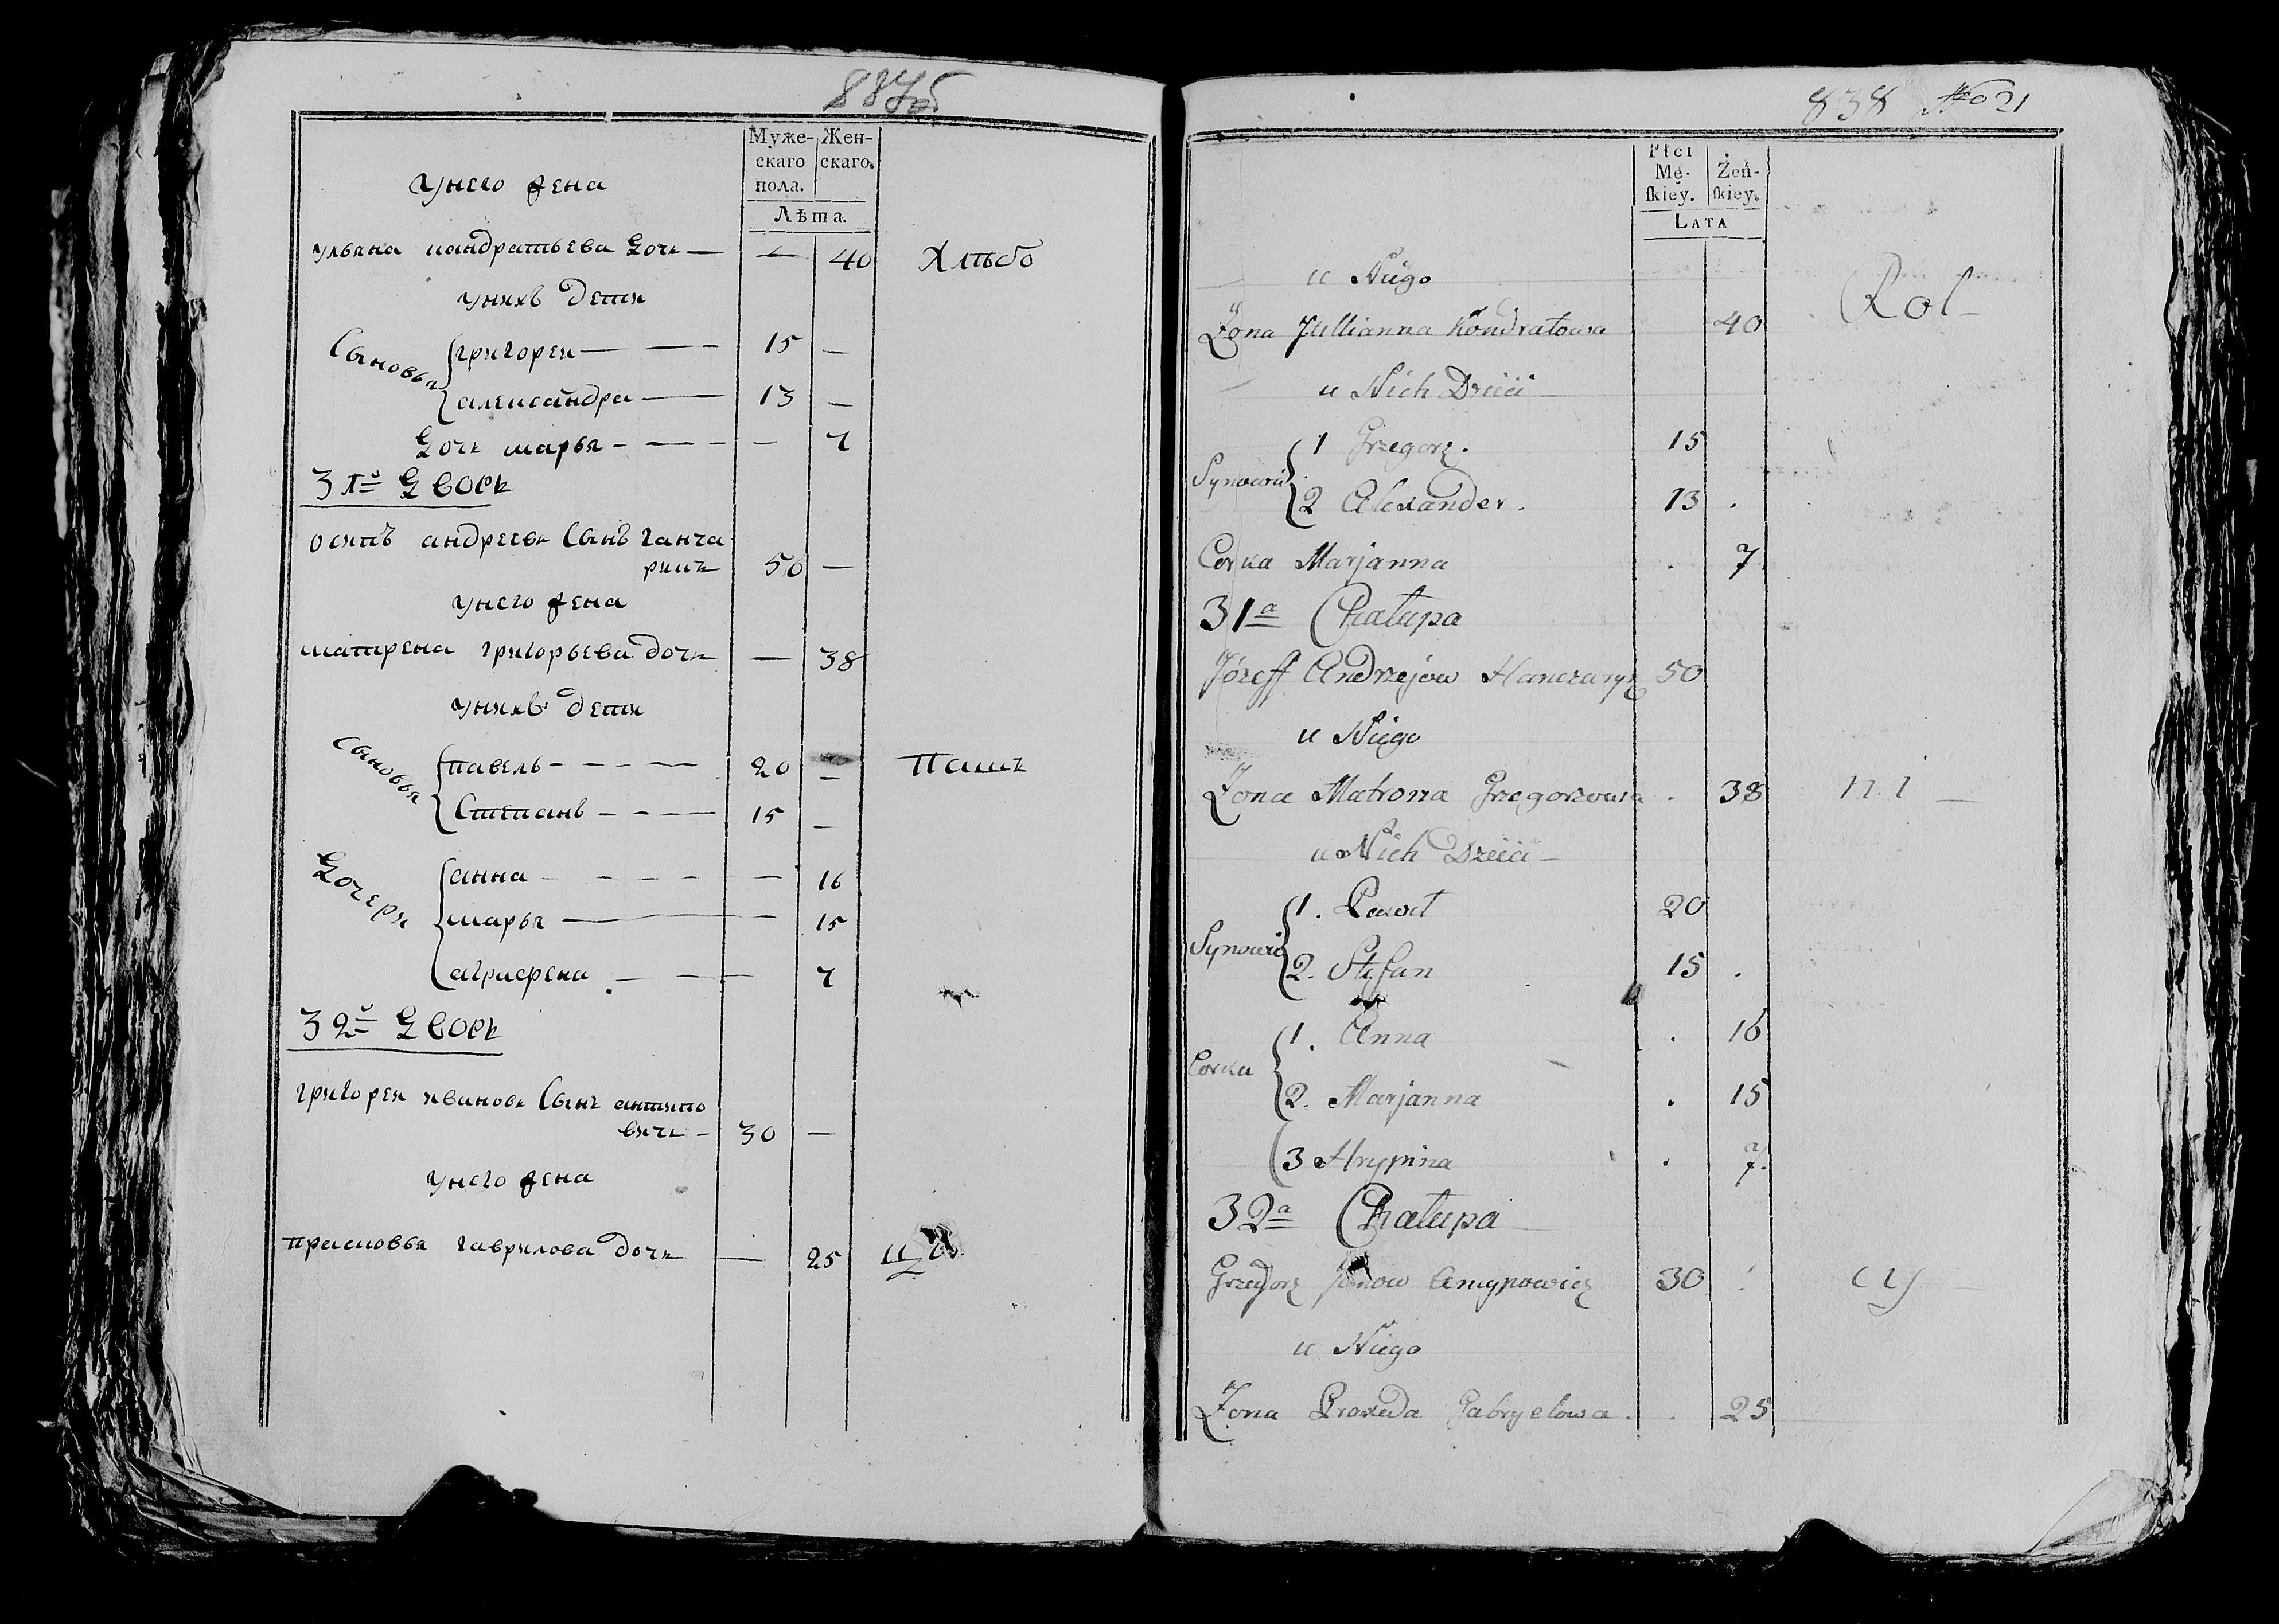 887об
Муже-
скаго
пола.
Жен-
скаго.
Лѣта.
у него жена
ульяна кандратьева дочь — — 40 Хлѣбо
у нихъ дети
Сыновья
григореи — 15 —
александра — 13 —
дочь марья — — 7
31й дворъ
осипъ андреевъ Сынъ ганча
рикъ 50 —
у него жена
матрена григорьева дочь — 38
у нихъ дети
Сыновья
павелъ — 20 — Пашц
Степанъ — 15 —
дочери
анна — — 16
марья — 15
агриферена — 7
32й дворъ
григореи ивановъ Сынъ антипо
вичъ — 30 —
у него жена
прасковья гаврилова дочь — 25
838 No 21
Płci
Mę-
skiey.
Żeń-
skiey.
LATA
u Niego
Żona Jullianna Kondratowa 40 Rol
u Nich Dzieci
Synowie
1 Grzegorz. 15
2 Alexander. 13 .
Corka Marjanna . 7
31a Chałupa
Józeff Andrzejow Hanczaryk 50
u Niego
Żona Matrona Grzegorzowa . 38 ni
u Nich Dzieci
Synowie
1. Paweł 20
2. Styfan 15 .
Corka
1. Anna . 16
2. Marjanna . 15
3 Hrypina . 7.
32a Chałupa
Grzegorz Janow Antypowicz 30 . cy
u Niego
Żona Praxeda Gabryelowa . . 25